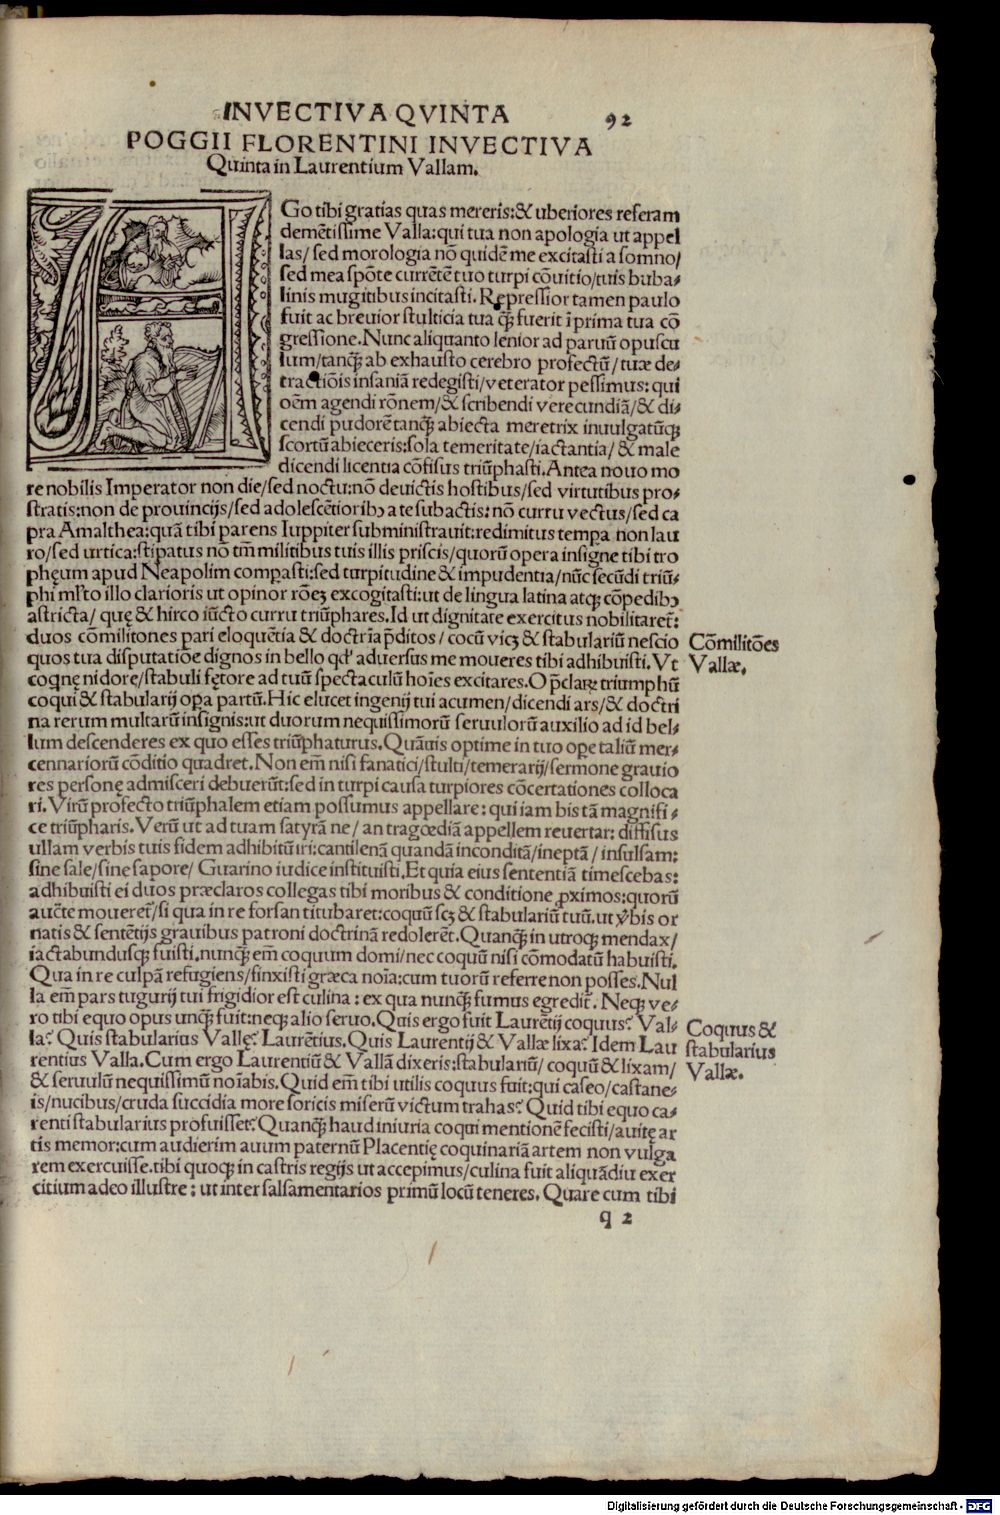 INVECTIVA QVINTA 92
POGGII FLORENTINI INVECTIVA
Quinta in Laurentium Vallam.
AGo tibi gratias quas mereris:& uberiores referam
demētissime Valla:qui tua non apologia ut appel
las/ sed morologia nō quidē me excitasti a somno/
sed mea spōte currētē tuo turpi cōuitio/tuis buba⸗
linis mugitibus incitasti. Repressior tamen paulo
fuit ac breuior stulticia tua q̄ꝫ fuerit ī prima tua cō
gressione. Nunc aliquanto lenior ad paruū opuscu
lum/tanq̄ꝫ ab exhausto cerebro profectū/tuæ de⸗
tractiōis insaniā redegisti/veterator pessimus: qui
oēm agendi rōnem/& scribendi verecundiā/& di⸗
cendi pudorē tanq̄ꝫ abiecta meretrix inuulgatūqꝫ
scortū abieceris:sola temeritate/iactantia/& male
dicendi licentia cōfisus triūphasti. Antea nouo mo
re nobilis Imperator non die/sed noctu:nō deuictis hostibus/sed virtutibus pro⸗
stratis:non de prouincijs/sed adolescētioribꝫ a te subactis: nō curru vectus/sed ca
pra Amalthea:quā tibi parens Iuppiter subministrauit:redimitus tempa non lau
ro/sed urtica:stipatus nō tm̄ militibus tuis illis priscis/quorū opera insigne tibi tro
phęum apud Neapolim compasti:sed turpitudine & impudentia/nūc secūdi triū⸗
phi ml̄to illo clarioris ut opinor rōeꝫ excogitasti:ut de lingua latina atqꝫ cōpedibꝫ
astricta/ quę & hirco iūcto curru triūphares. Id ut dignitate exercitus nobilitaret̄:
duos cōmilitones pari eloquētia & doctrīa p̄ditos/ cocū vicꝫ & stabulariū nescio
Cōmilitōes
quos tua disputatiōe dignos in bello qd' aduersus me moueres tibi adhibuisti. Vt
Vallæ.
coqnę nidore/stabuli fętore ad tuū spectaculū hoīes excitares. O p̄claꝝ triumphū
coqui & stabularij opa partū. Hic elucet ingenij tui acumen/dicendi ars/& doctri
na rerum multarū insignis:ut duorum nequissimorū seruulorū auxilio ad id bel⸗
lum descenderes ex quo esses triūphaturus. Quāuis optime in tuo ope taliū mer⸗
cennariorū cōditio quadret. Non em̄ nisi fanatici/stulti/temerarij/sermone grauio
res personę admisceri debuerūt:sed in turpi causa turpiores cōcertationes colloca
ri. Virū profecto triūphalem etiam possumus appellare: qui iam bis tā magnifi⸗
ce triūpharis. Verū ut ad tuam satyrā ne/ an tragœdiā appellem reuertar: diffisus
ullam verbis tuis fidem adhibitū iri:cantilenā quandā inconditā/ineptā/ insulsam:
sine sale/sine sapore/ Guarino iudice instituisti. Et quia eius sententiā timescebas:
adhibuisti ei duos præclaros collegas tibi moribus & conditione ꝓximos:quorū
auc̄te moueret̄/si qua in re forsan titubaret:coquū scꝫ & stabulariū tuū. ut v̄bis or
natis & sentētijs grauibus patroni doctrinā redolerēt. Quanq̄ꝫ in utroqꝫ mendax/
iactabundusqꝫ fuisti. nunq̄ꝫ em̄ coquum domi/nec coquū nisi cōmodatū habuisti.
Qua in re culpā refugiens/finxisti græca noīa:cum tuorū referre non posses. Nul
la em̄ pars tugurij tui frigidior est culina: ex qua nunq̄ꝫ fumus egredit̄. Neqꝫ ve⸗
ro tibi equo opus unq̄ꝫ fuit:neqꝫ alio seruo. Quis ergo fuit Laurētij coquus? Val⸗
Coquus &
la? Quis stabularius Vallę? Laurētius. Quis Laurentij & Vallæ lixa? Idem Lau
stabularius
rentius Valla. Cum ergo Laurentiū & Vallā dixeris:stabulariū/ coquū & lixam/
Vallæ.
& seruulū nequissimū noīabis. Quid em̄ tibi utilis coquus fuit:qui caseo/castane⸗
is/nucibus/cruda succidia more soricis miserū victum trahas? Quid tibi equo ca⸗
renti stabularius profuisset? Quanq̄ꝫ haud iniuria coqui mentionē fecisti/auitę ar
tis memor:cum audierim auum paternū Placentię coquinariā artem non vulga
rem exercuisse. tibi quoqꝫ in castris regijs ut accepimus/culina fuit aliquādiu exer
citium adeo illustre: ut inter salsamentarios primū locū teneres. Quare cum tibi
q 2
Digitalisierung gefördert durch die Deutsche Forschungsgemeinschaft - DFG